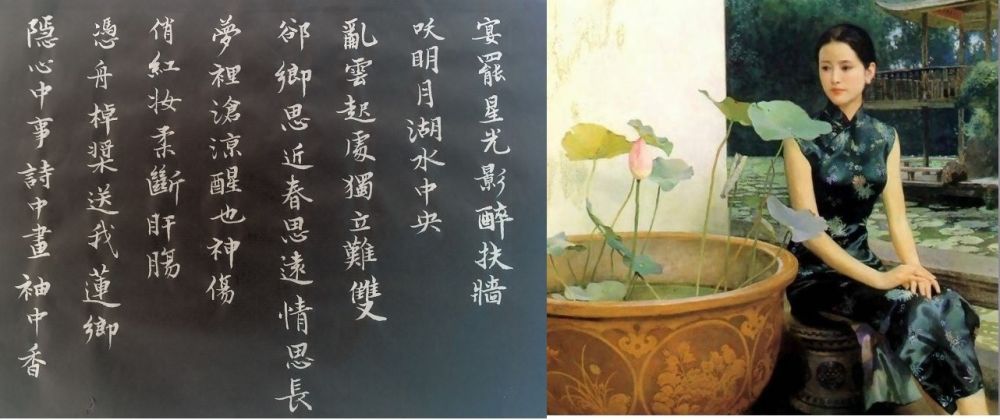 宴罷星光影醉扶牆
咲明月湖水中央
亂雲起處獨立難雙
郤鄉思近春思遠情思長
夢裡滄涼醒也神傷
俏紅妆柔斷肝腸
憑舟棹槳送我蓮鄉
隱心中事詩中畫袖中香